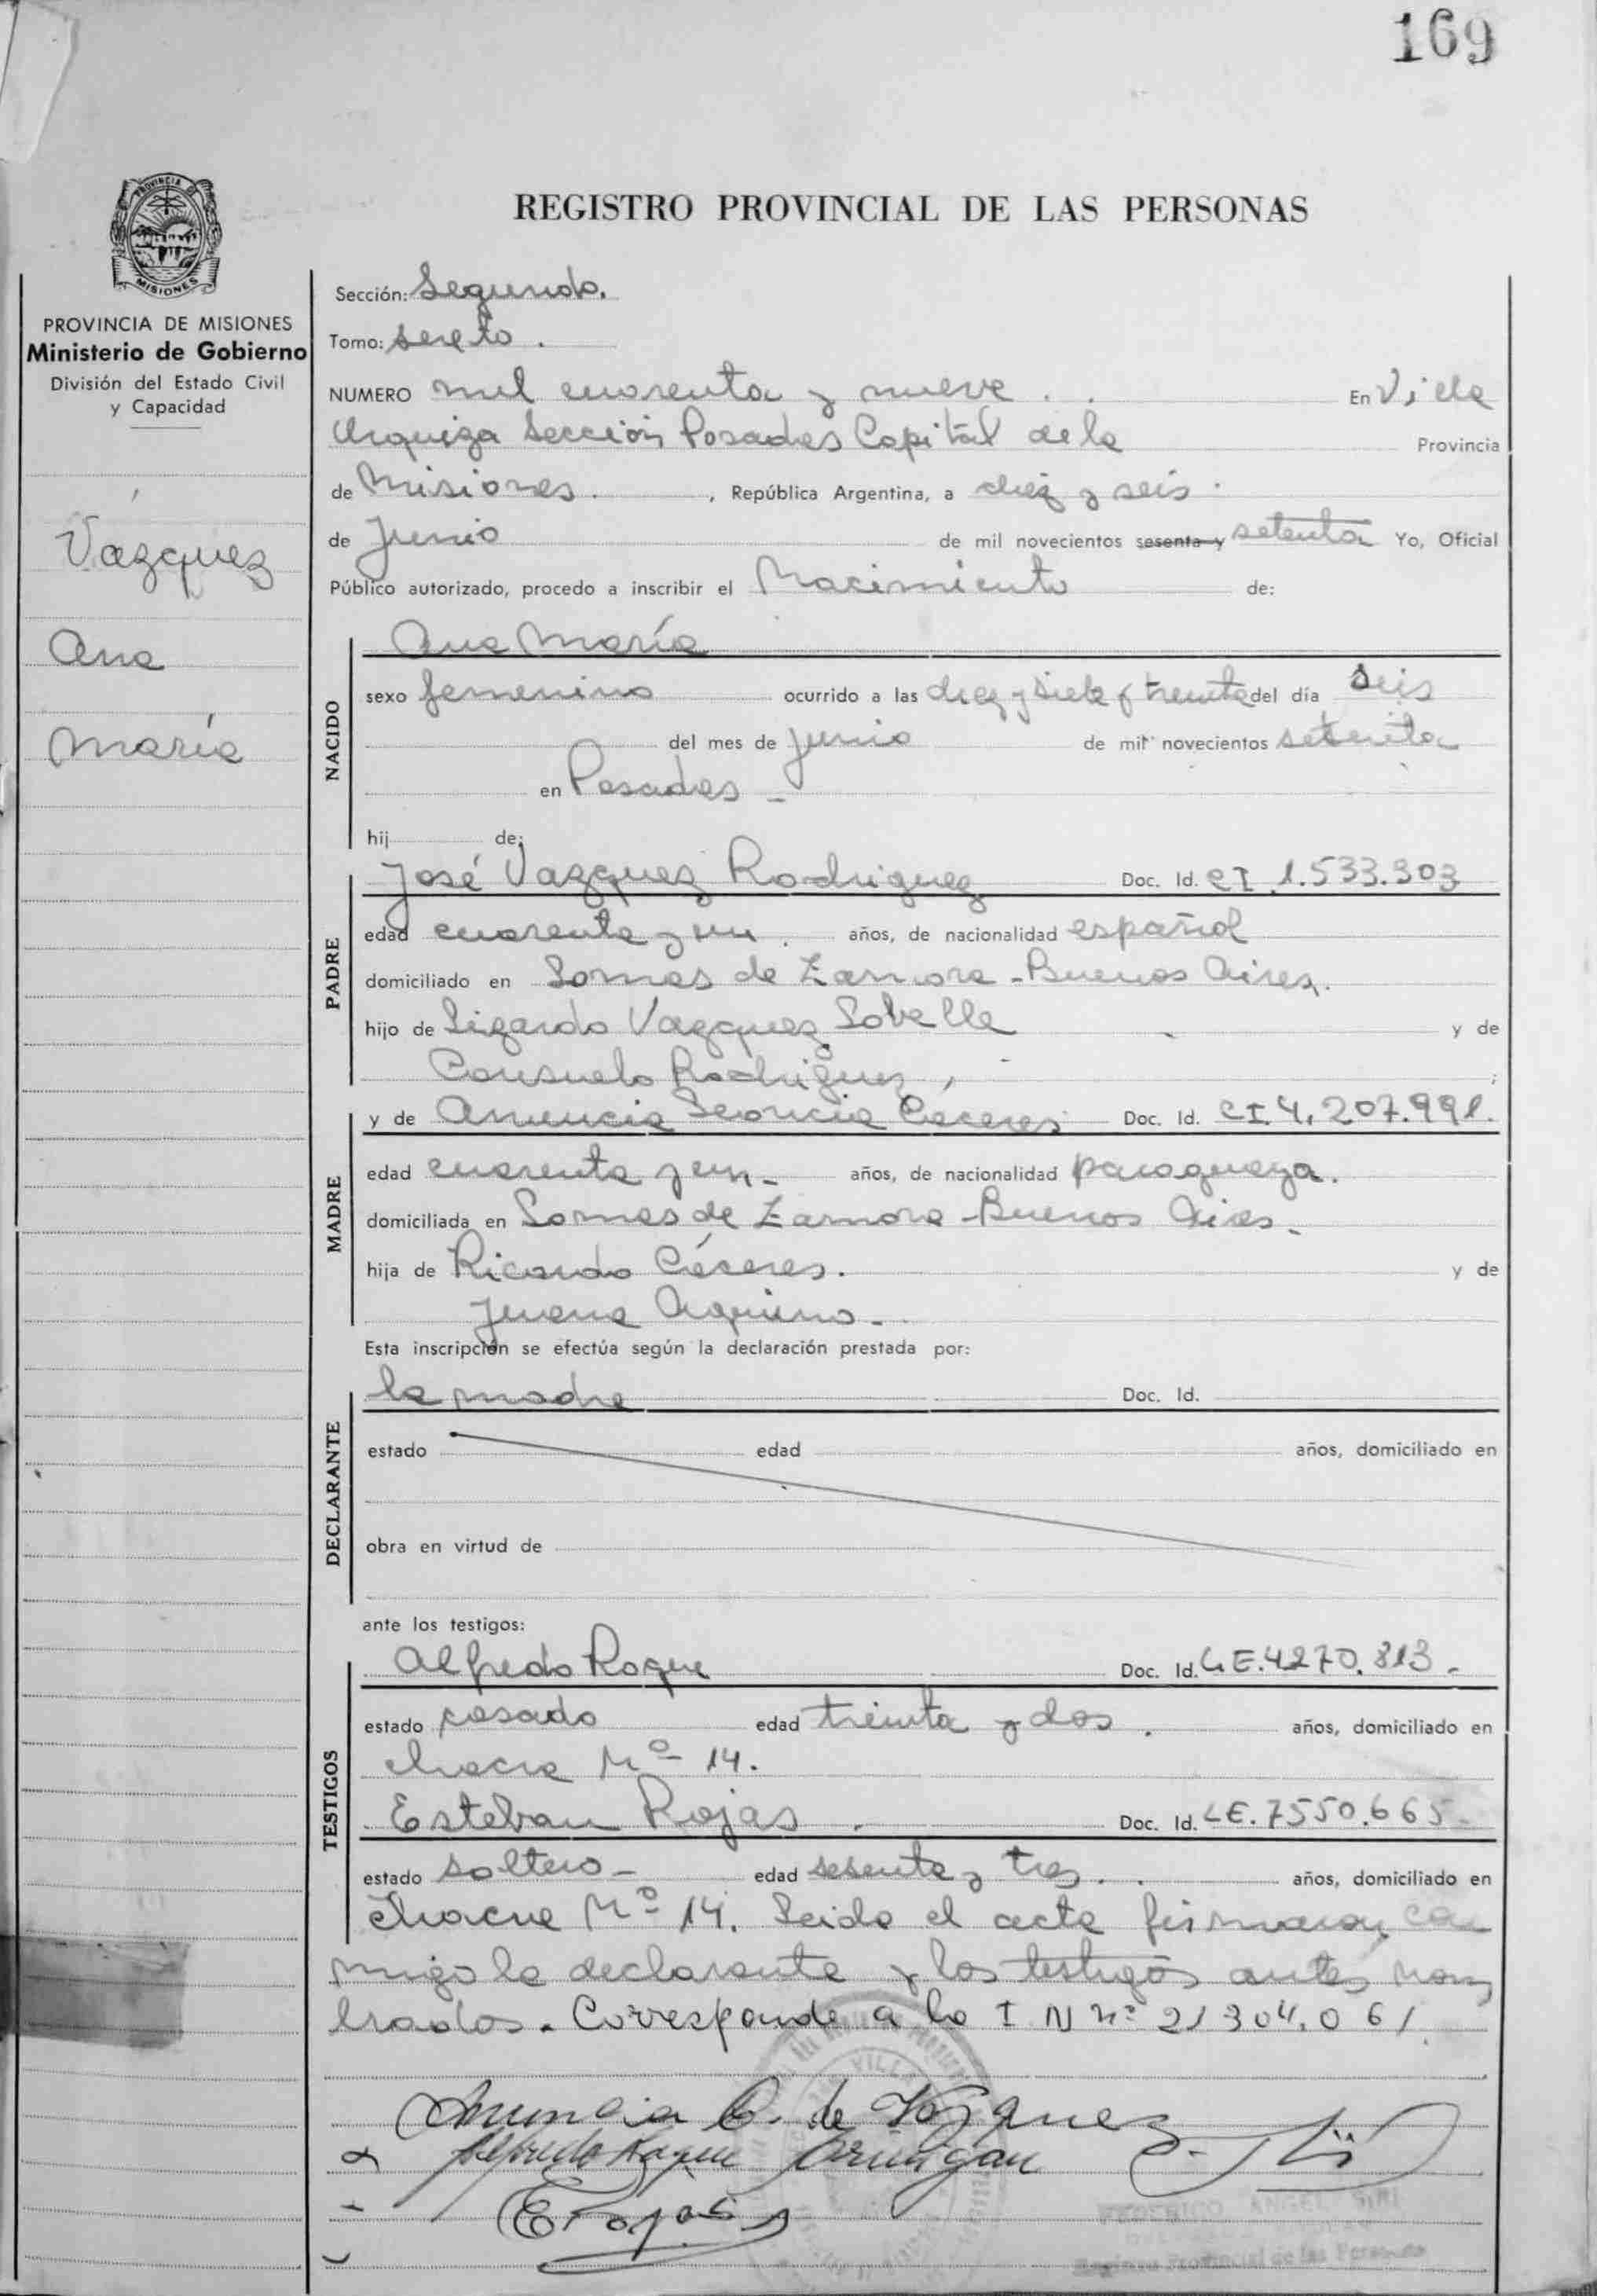 169
PROVINCIA DE MISIONES
Ministerio de Gobierno
División del Estado Civil
y Capacidad
Vazquez
Ana
María
REGISTRO PROVINCIAL DE LAS PERSONAS
Sección: Segunda.
Tomo: sexto.
NUMERO mil cuarenta y nueve. . En Villa
Urquiza Sección Posadas Capital de la Provincia
de Misiones. , República Argentina, a diez y seis.
de Junio de mil novecientos sesenta y setenta Yo, Oficial
Público autorizado, procedo a inscribir el Nacimiento de:
NACIDO
Ana María
sexo femenino ocurrido a las diez y siete y treinta del día seis
del mes de Junio de mil novecientos setenta
en Posadas -
hij de:
PADRE
José Vazquez Rodriguez Doc. Id. CI 1.533.303
edad cuarenta y un. años, de nacionalidad español
domiciliado en Lomas de Zamora - Buenos Aires.
hijo de Lizardo Vazquez Sobelle y de
Consuelo Rodriguez, ;
MADRE
y de Anuncia Leoncia Cáceres Doc. Id. CI. 4.207.991.
edad cuarenta y un - años, de nacionalidad paraguaya.
domiciliada en Lomas de Zamora - Buenos Aires -
hija de Ricardo Cáceres. y de
Juana Aquino -
Esta inscripción se efectúa según la declaración prestada por:
DECLARANTE
la madre Doc. Id.
estado edad años, domiciliado en
obra en virtud de
ante los testigos:
TESTIGOS
Alfredo Roque Doc. Id. LE. 4270.813 -
estado casado edad treinta y dos. años, domiciliado en
chacra Nº 14.
Esteban Rojas. Doc. Id. LE. 7550.665 -
estado soltero - edad sesenta y tres. . años, domiciliado en
chacra Nº 14. Leida el acta firmaron con
migo la declarante y los testigos antes nom
brados. Corresponde a la I N nº 21304.061.
Anuncia C. de Vazquez
Alfredo Roque
E Rojas
FEDERICO ANGEL SIRI
Registro Provincial de las Personas